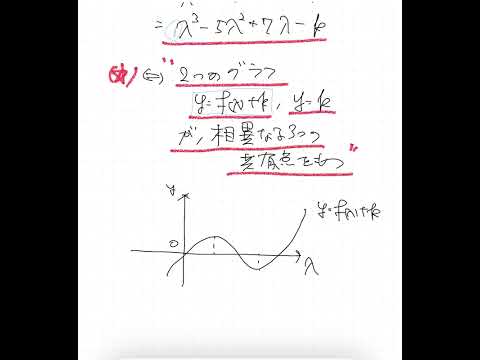 = λ³-5λ²+7λ-k
(☆) ⇔ "2つのグラフ
y=f(λ)+k, y=k
が、相異なる3つの
共有点をもつ"
y
y=f(λ)+k
0
λ